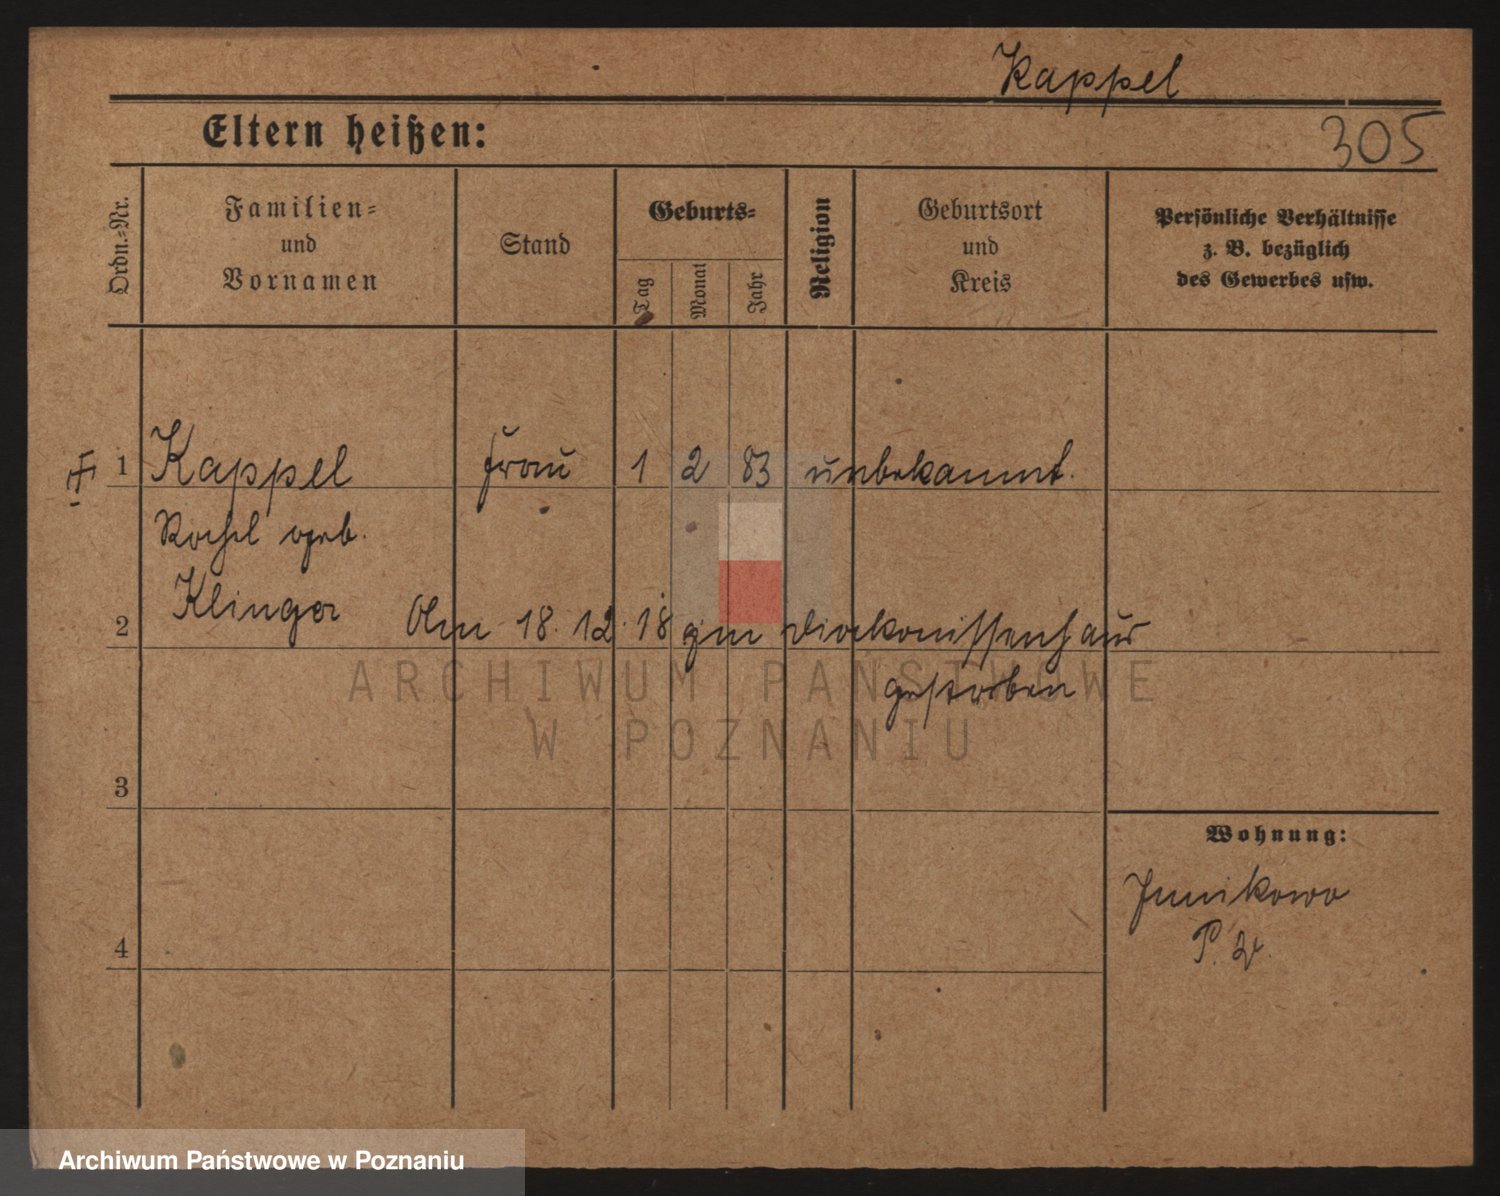 Kappel
Eltern heißen:
305
Ordn.-Nr.
Familien-
und
Vornamen
Stand
Geburts-
Tag
Monat
Jahr
Religion
Geburtsort
und
Kreis
Persönliche Verhältnisse
z. B. bezüglich
des Gewerbes usw.
1 Kappel Frau 1 2 83 unbekannt.
geb.
Klinger
2 Am 18. 12. 18 im Diakonissenhaus
gestorben
ARCHIWUM PAŃSTWOWE
W POZNANIU
3
Wohnung:
Junikowo
4
Archiwum Państwowe w Poznaniu